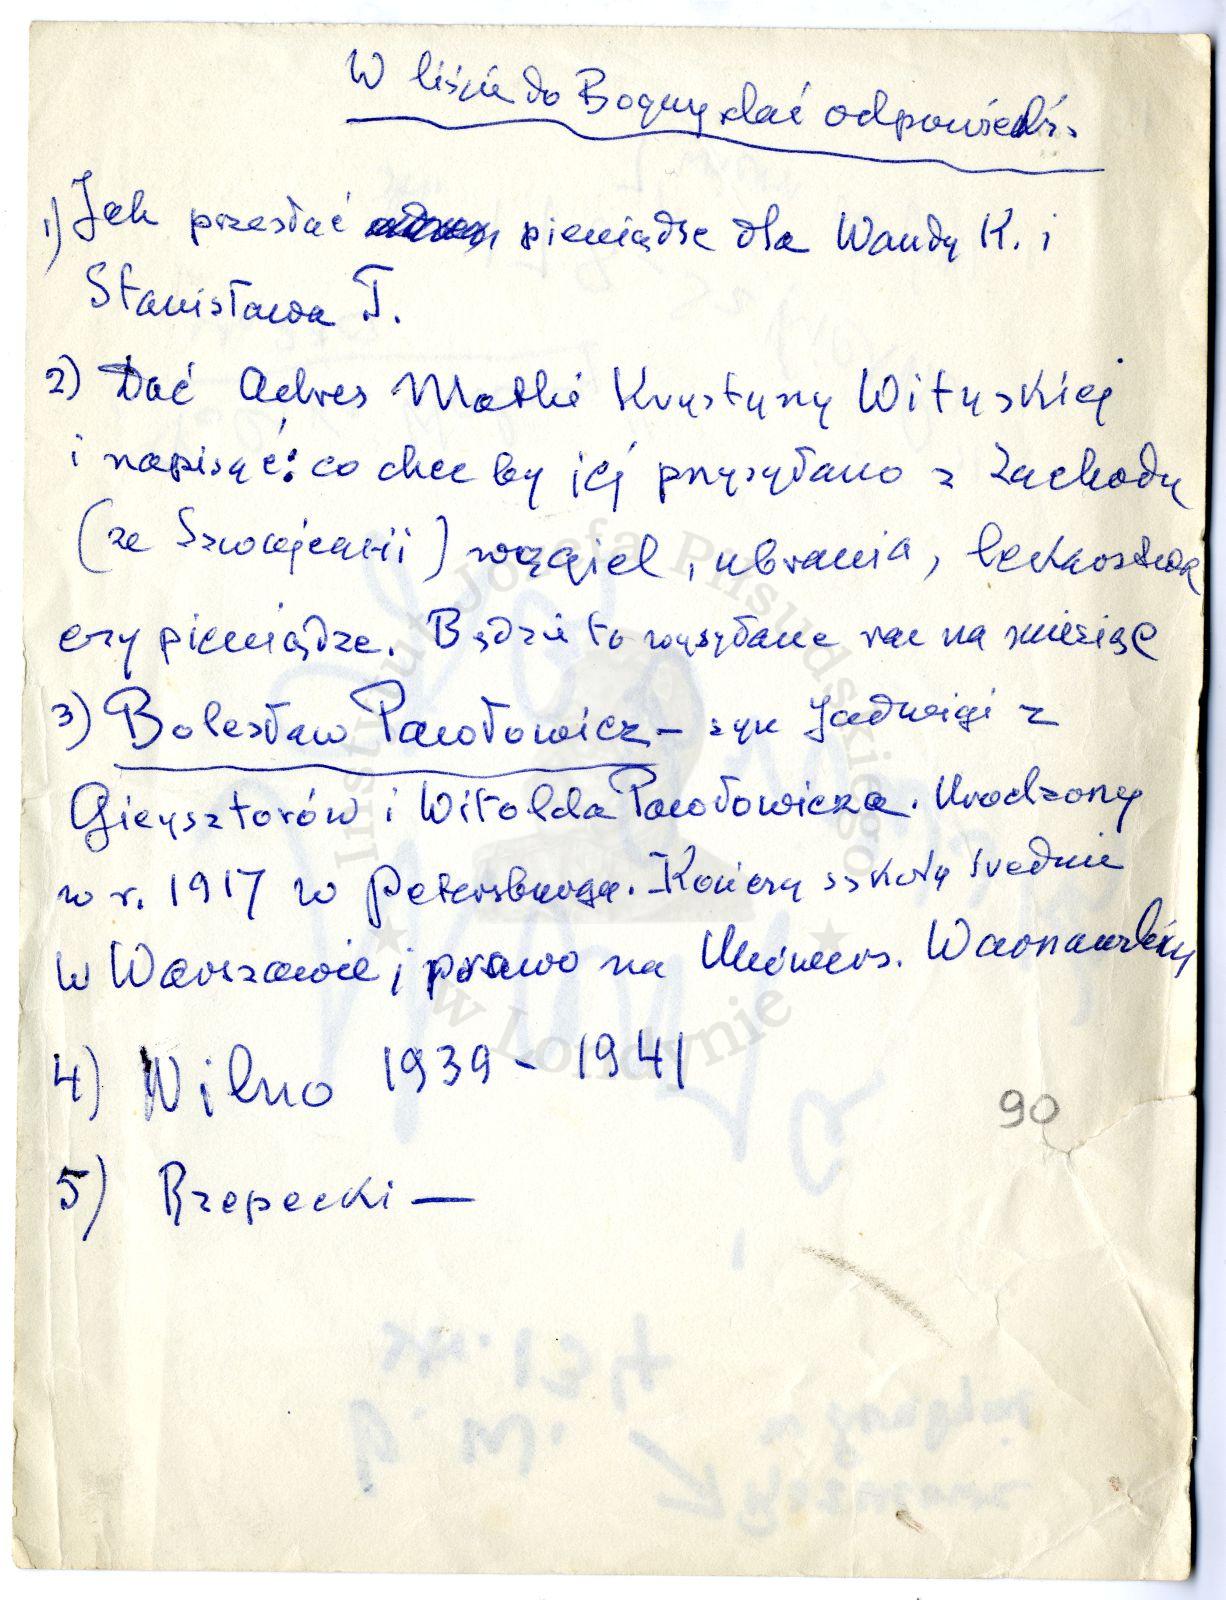 W liście do Boguny dać odpowiedź.
1) Jak przesłać pieniądze dla Wandy K. i
Stanisława T.
2) Dać Adres Matki Krystyny Wituskiej
i napisać: co chce by jej przysyłano z Zachodu
(ze Szwajcarii) węgiel, ubrania, lekarstwa
czy pieniądze. Będzie to wysyłane raz na miesiąc
3) Bolesław Pawłowicz – syn Jadwigi z
Gieysztorów i Witolda Pawłowicza. Urodzony
w r. 1917 w Petersburgu. Kończy szkołę średnie
w Warszawie i prawo na Uniwers. Warszawskim
4) Wilno 1939 - 1941
90
5) Rzepecki —
Instytut Józefa Piłsudskiego
★ w Londynie ★